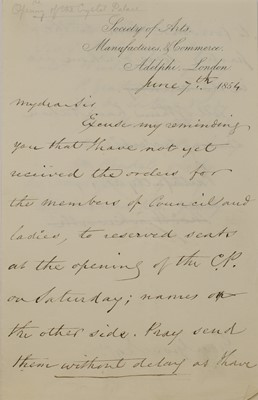 Opening of the Crystal Palace
Society of Arts,
Manufactures, & Commerce.
Adelphi, London
June 7th 1854
My dear Sir
Excuse my reminding
you that I have not yet
received the orders for
the members of Council and
ladies, to reserved seats
at the opening of the C.P.
on Saturday; names on
the other side. Pray send
them without delay as I have